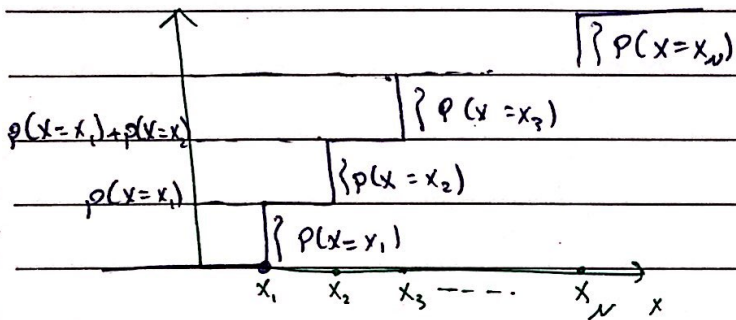 P(X=x_N)
P(X=x_3)
p(X=x_1)+p(X=x_2)
p(X=x_2)
p(X=x_1)
P(X=x_1)
x_1 x_2 x_3 ----. x_N x